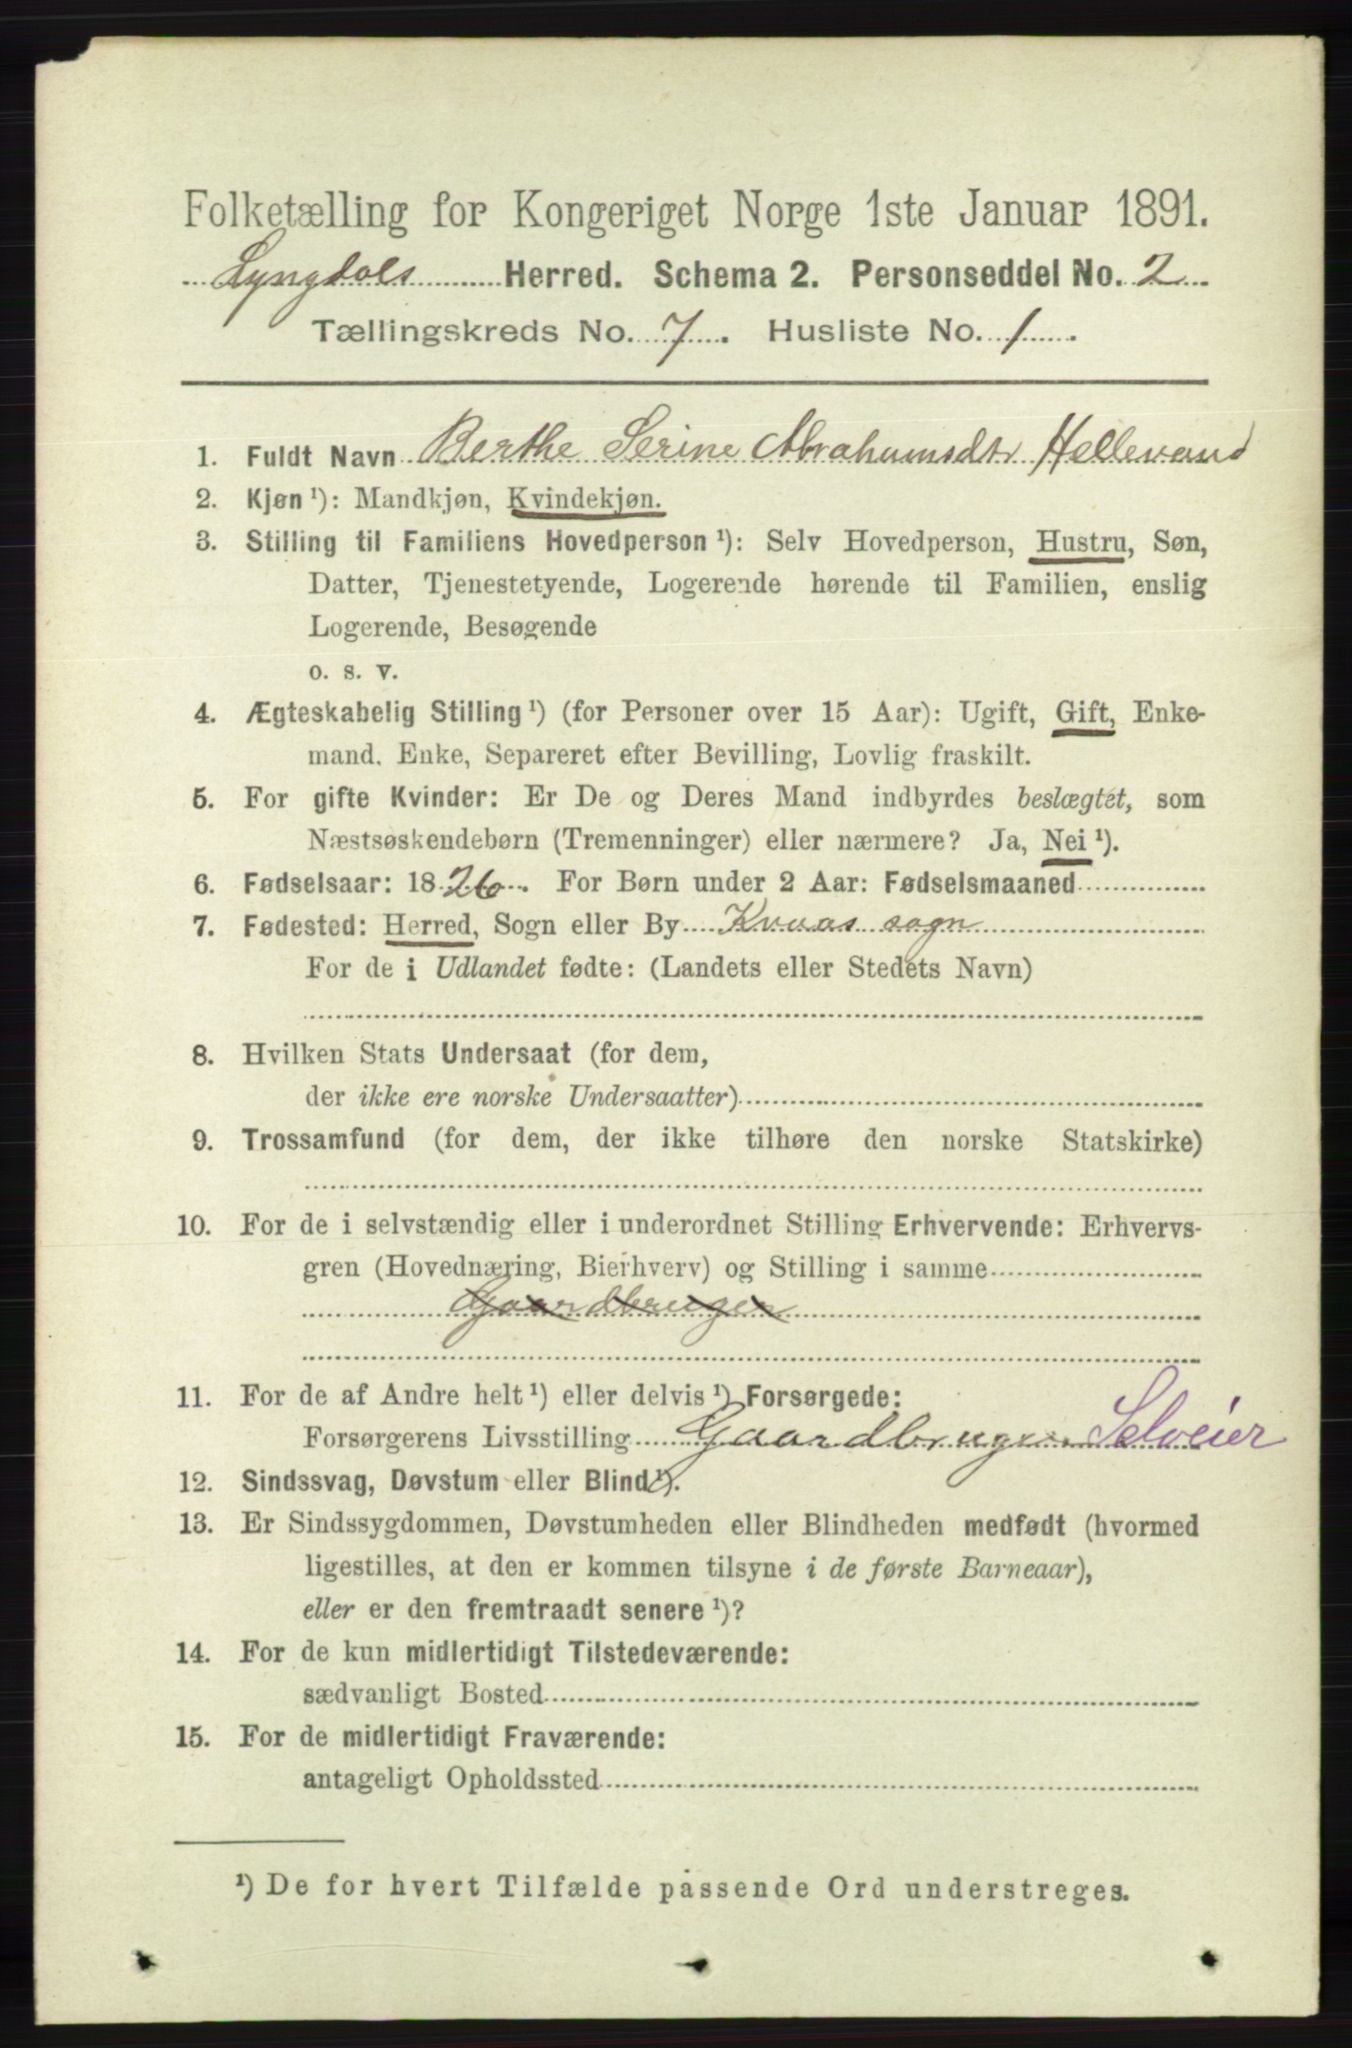 Folketælling for Kongeriget Norge 1ste Januar 1891.
Lyngdals Herred. Schema 2. Personseddel No. 2
Tællingskreds No. 7. Husliste No. 1.
1. Fuldt Navn Berthe Serine Abrahamsdtr Hellevand
2. Kjøn ¹): Mandkjøn, Kvindekjøn.
3. Stilling til Familiens Hovedperson ¹): Selv Hovedperson, Hustru, Søn,
Datter, Tjenestetyende, Logerende hørende til Familien, enslig
Logerende, Besøgende
o. s. v.
4. Ægteskabelig Stilling ¹) (for Personer over 15 Aar): Ugift, Gift, Enke-
mand, Enke, Separeret efter Bevilling, Lovlig fraskilt.
5. For gifte Kvinder: Er De og Deres Mand indbyrdes beslægtet, som
Næstsøskendebørn (Tremenninger) eller nærmere? Ja, Nei ¹).
6. Fødselsaar: 1826. For Børn under 2 Aar: Fødselsmaaned
7. Fødested: Herred, Sogn eller By Kvaas sogn
For de i Udlandet fødte: (Landets eller Stedets Navn)
8. Hvilken Stats Undersaat (for dem,
der ikke ere norske Undersaatter)
9. Trossamfund (for dem, der ikke tilhøre den norske Statskirke)
10. For de i selvstændig eller i underordnet Stilling Erhvervende: Erhvervs-
gren (Hovednæring, Bierhverv) og Stilling i samme
Gaardbruger
11. For de af Andre helt ¹) eller delvis ¹) Forsørgede:
Forsørgerens Livsstilling Gaardbruger Selveier
12. Sindssvag, Døvstum eller Blind ¹).
13. Er Sindssygdommen, Døvstumheden eller Blindheden medfødt (hvormed
ligestilles, at den er kommen tilsyne i de første Barneaar),
eller er den fremtraadt senere ¹)?
14. For de kun midlertidigt Tilstedeværende:
sædvanligt Bosted
15. For de midlertidigt Fraværende:
antageligt Opholdssted
¹) De for hvert Tilfælde passende Ord understreges.